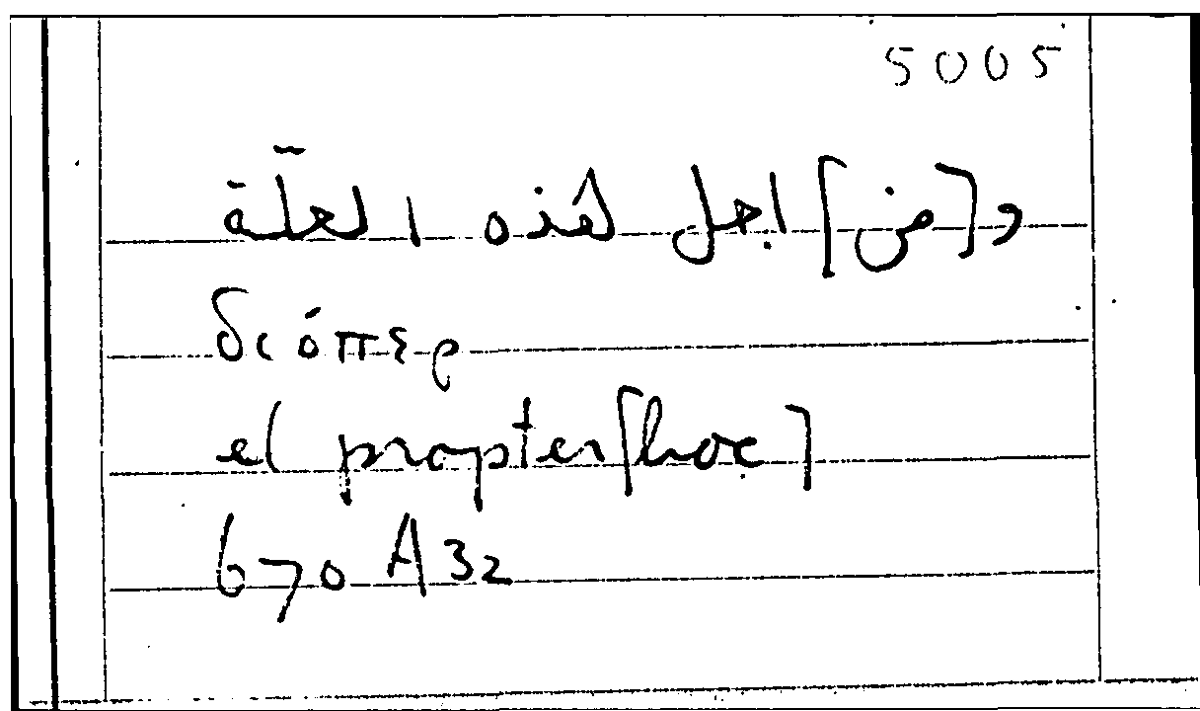 5005
و[من] اجل هذه العلّة
διόπερ
et propter [hoc]
670 A 32